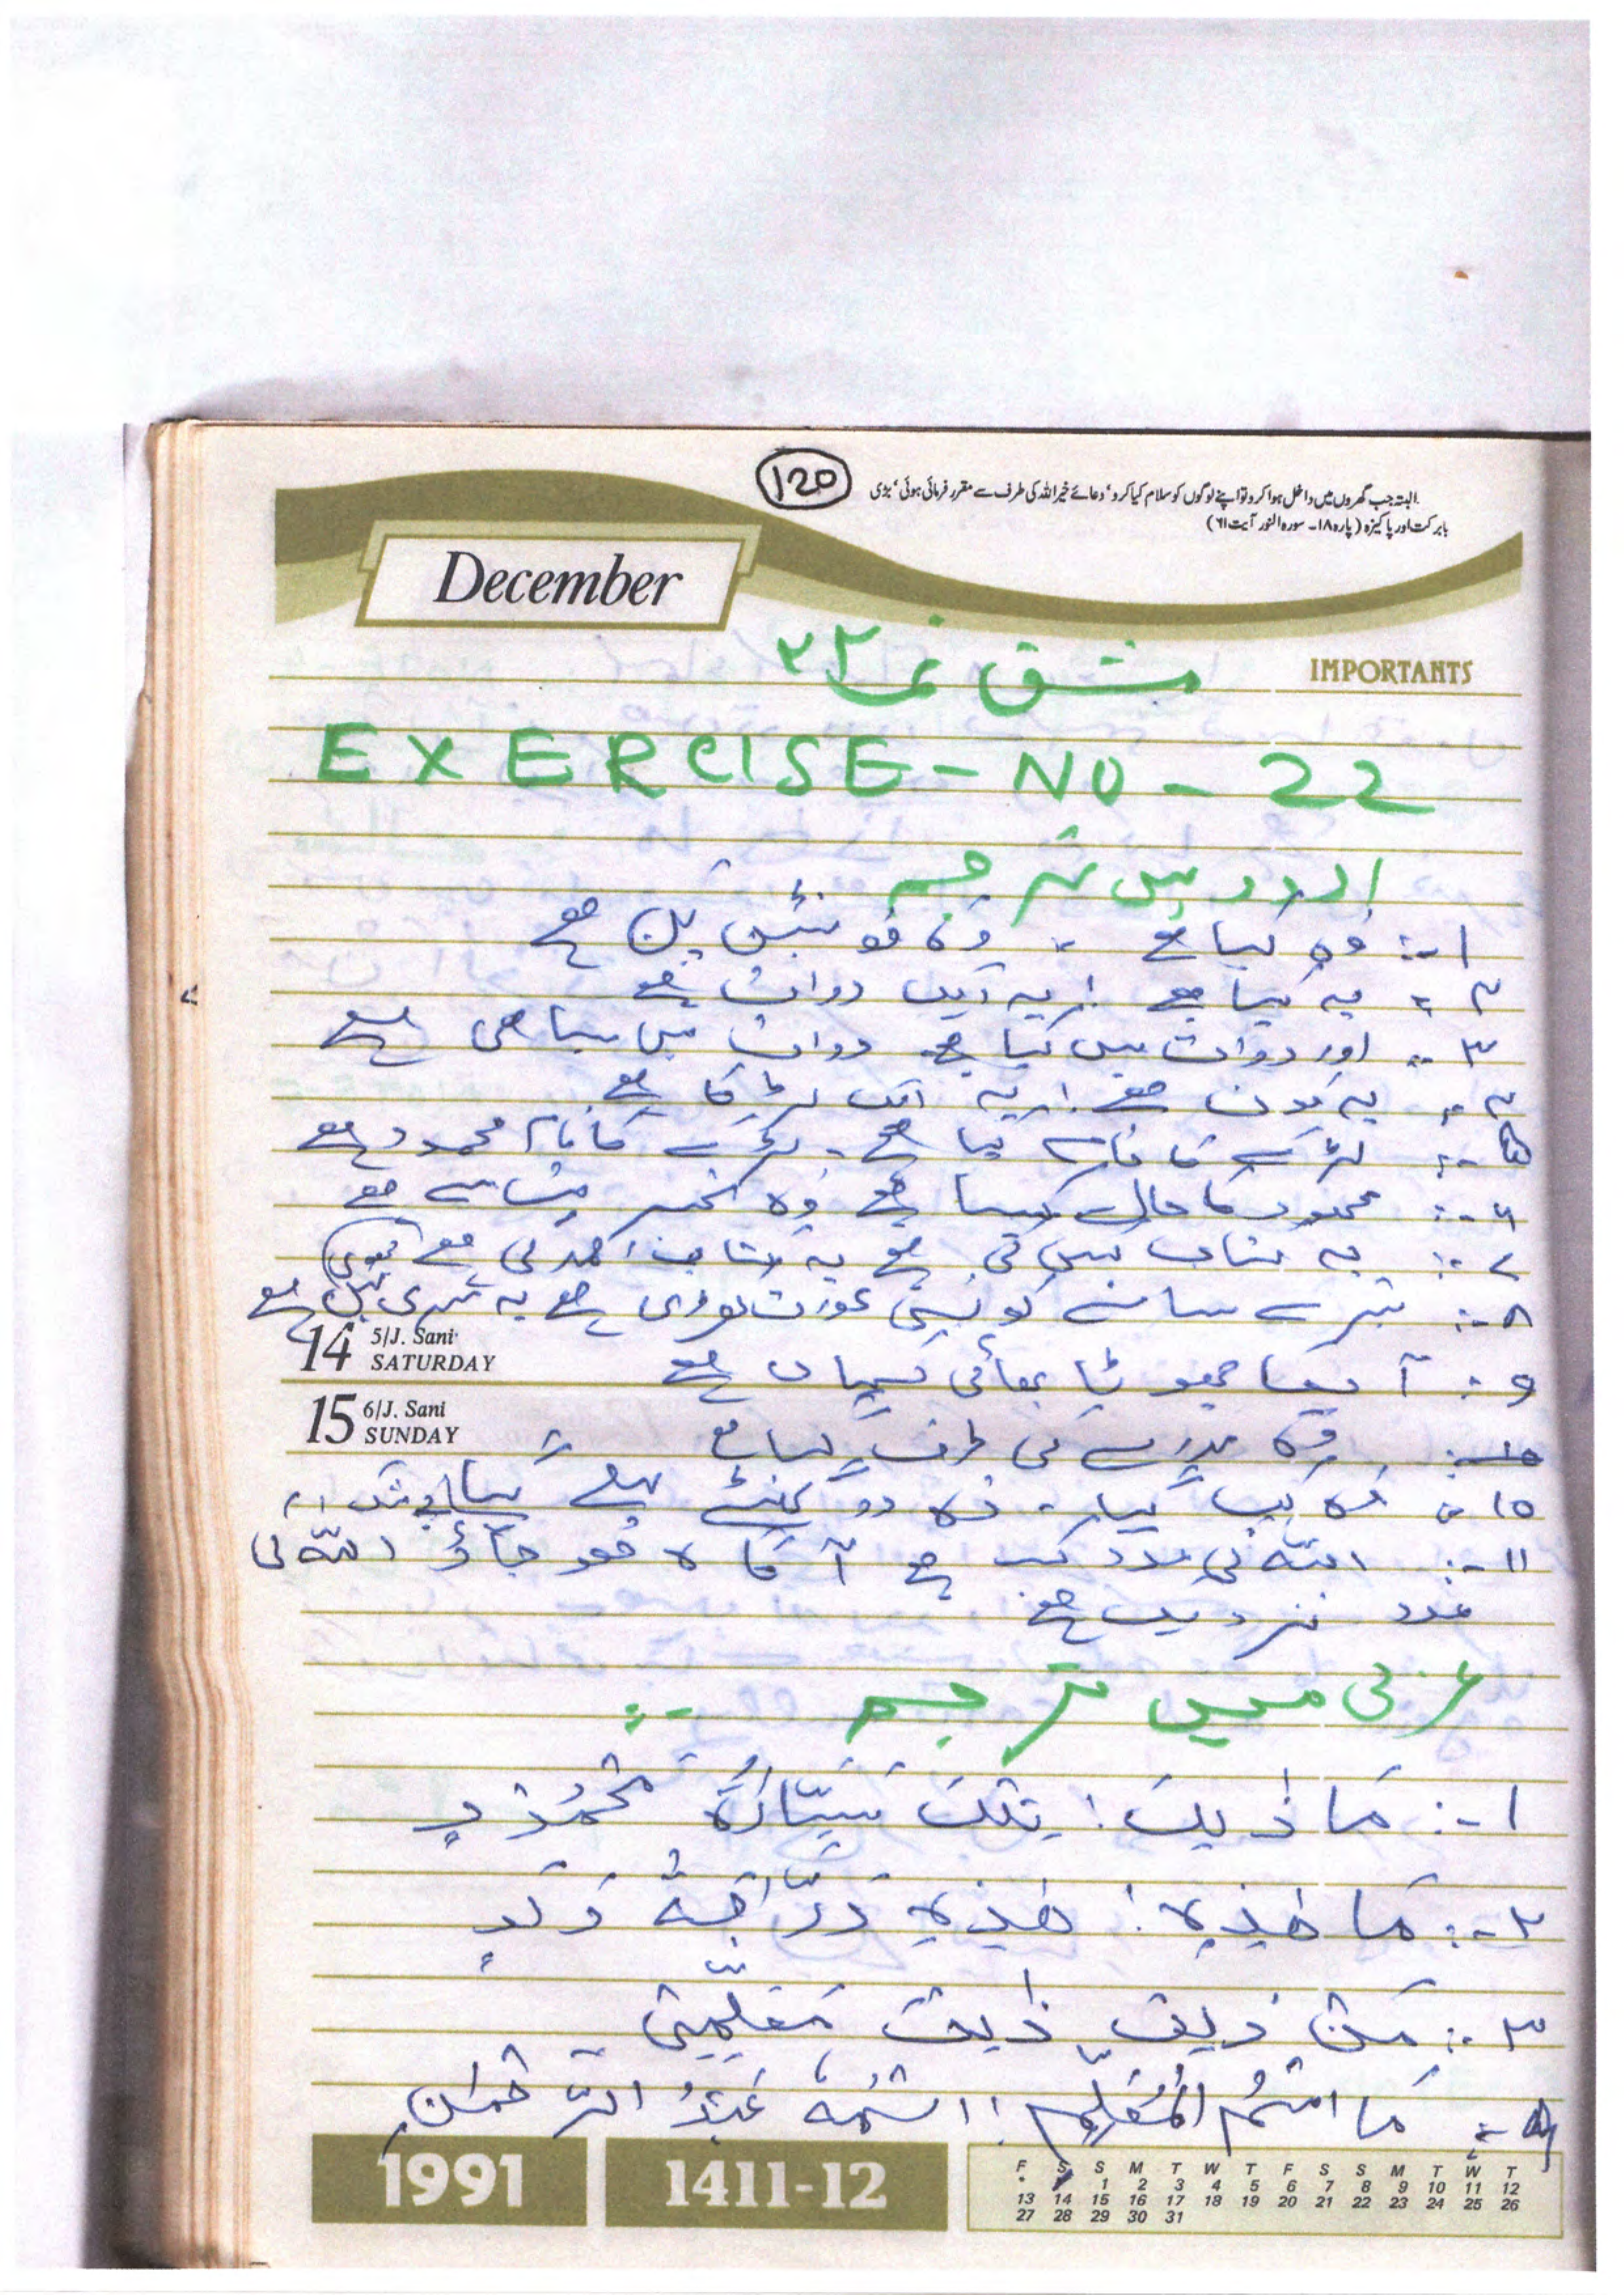 120
البتہ جب گھروں میں داخل ہوا کرو تو اپنے لوگوں کو سلام کیا کرو، دعائے خیر اللہ کی طرف سے مقرر فرمائی ہوئی، بڑی
بابرکت اور پاکیزہ (پارہ ۱۸۔ سورہ النور آیت ۶۱)
December
IMPORTANTS
مشق نمبر ۲۲
EXERCISE-NO-22
اردو میں ترجمہ
۱-: وہ کیا ہے ، وہ فونٹین پین ہے
۲ : یہ کیا ہے ! یہ ایک دوات ہے
۳ -: اور دوات میں کیا ہے۔ دوات میں سیاہی ہے
۴ -: یہ کون ہے ! یہ ایک لڑکا ہے
۵ -: لڑکے کا نام کیا ہے۔ لڑکے کا نام محمود ہے
۶ -: محمود کا حال کیسا ہے وہ خیریت سے ہے
۷ -: یہ کتاب کس کی ہے یہ کتاب احمد کی ہے
۸ -: تیرے سامنے کونسی عورت کھڑی ہے یہ میری بہن ہے
14 5/J. Sani SATURDAY
۹ -: آپکا چھوٹا بھائی کہاں ہے
15 6/J. Sani SUNDAY
وہ مدرسے کی طرف گیا ہے
۱۰ -: وہ کب گیا ۔ وہ دو گھنٹے پہلے گیا
۱۱ -: اللہ کی مدد کب ہے آگاہ ہو جاؤ اللہ کی
مدد نزدیک ہے
عربی میں ترجمہ -:
۱ -: مَا ذٰلِكَ ! تِلْكَ سَيَّارَةُ مَحْمُوْدٍ
۲ -: مَا هٰذِهٖ ! هٰذِهٖ دَرَّاجَةُ وَلَدٍ
۳ -: مَنْ ذٰلِكَ ذٰلِكَ مُعَلِّمِيْ
۴ -: مَا اسْمُ الْمُعَلِّمِ ! اسْمُهٗ عَبْدُ الرَّحْمٰنِ
1991
1411-12
F S S M T W T F S S M T W T
1 2 3 4 5 6 7 8 9 10 11 12
13 14 15 16 17 18 19 20 21 22 23 24 25 26
27 28 29 30 31